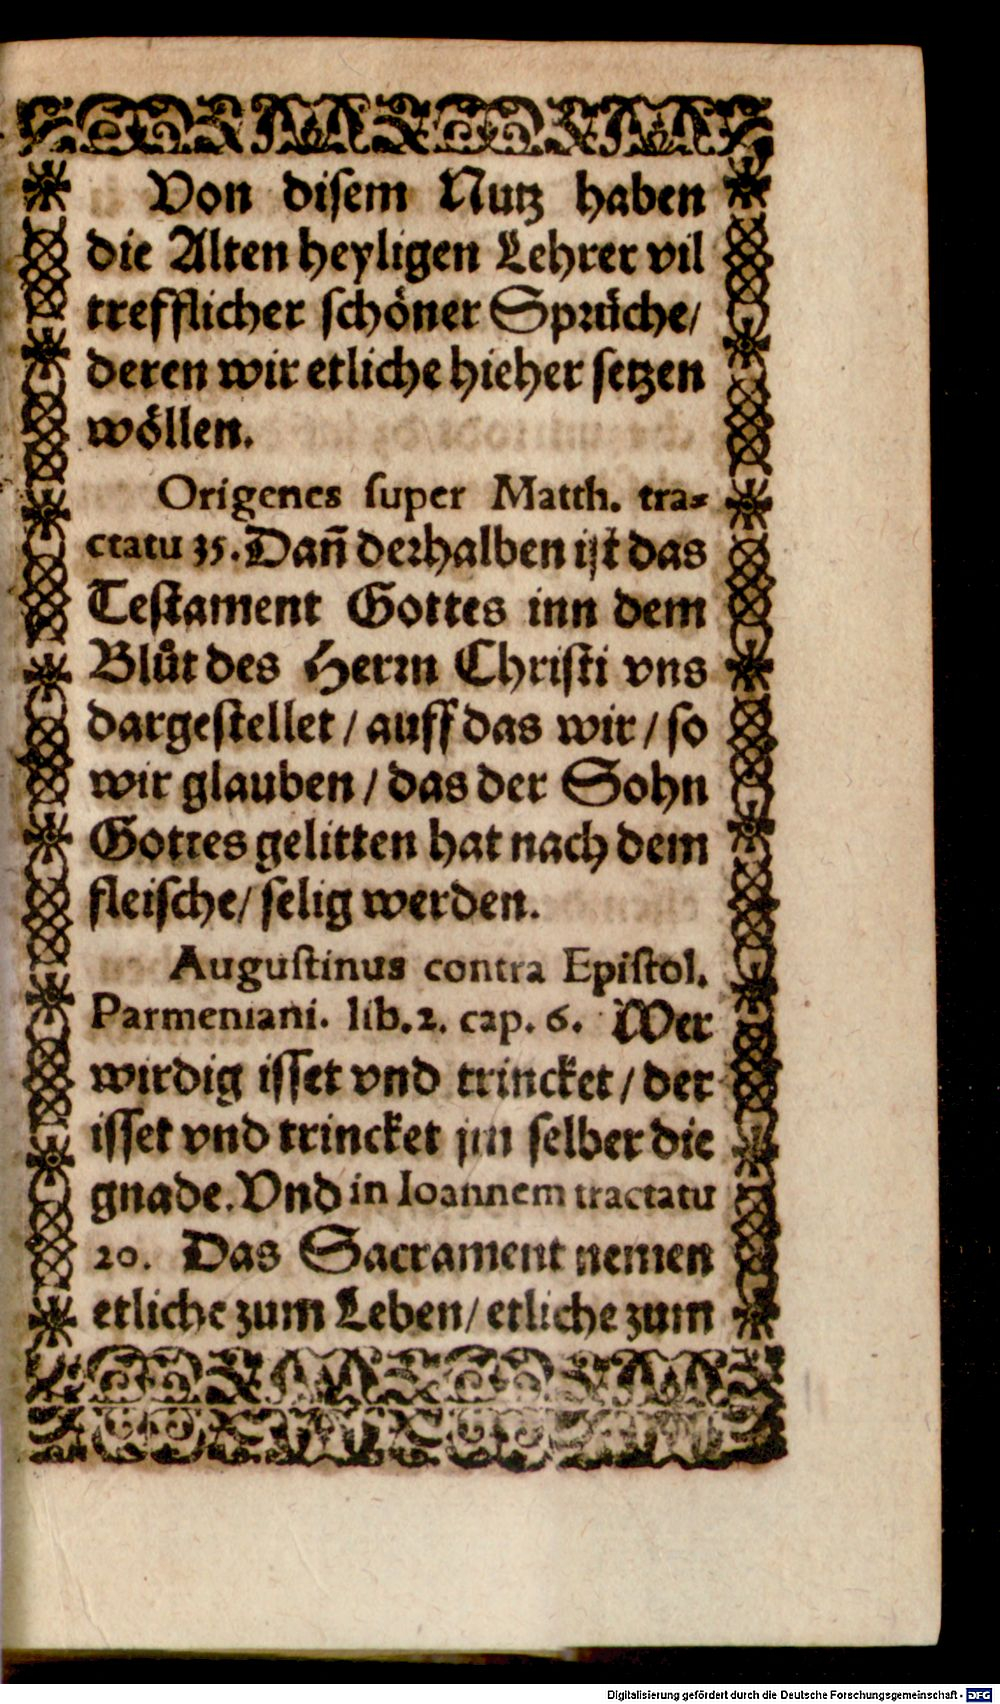 Von disem Nutz haben
die Alten heyligen Lehrer vil
trefflicher schöner Sprüche/
deren wir etliche hieher setzen
wöllen.
Origenes super Matth. tra-
ctatu 35. Dañ derhalben ist das
Testament Gottes inn dem
Blůt des Herrn Christi vns
dargestellet / auff das wir / so
wir glauben / das der Sohn
Gottes gelitten hat nach dem
fleische/ selig werden.
Augustinus contra Epistol.
Parmeniani. lib. 2. cap. 6. Wer
wirdig isset vnd trincket / der
isset vnd trincket jm selber die
gnade. Vnd in Ioannem tractatu
20. Das Sacrament nemen
etliche zum Leben/ etliche zum
Digitalisierung gefördert durch die Deutsche Forschungsgemeinschaft - DFG